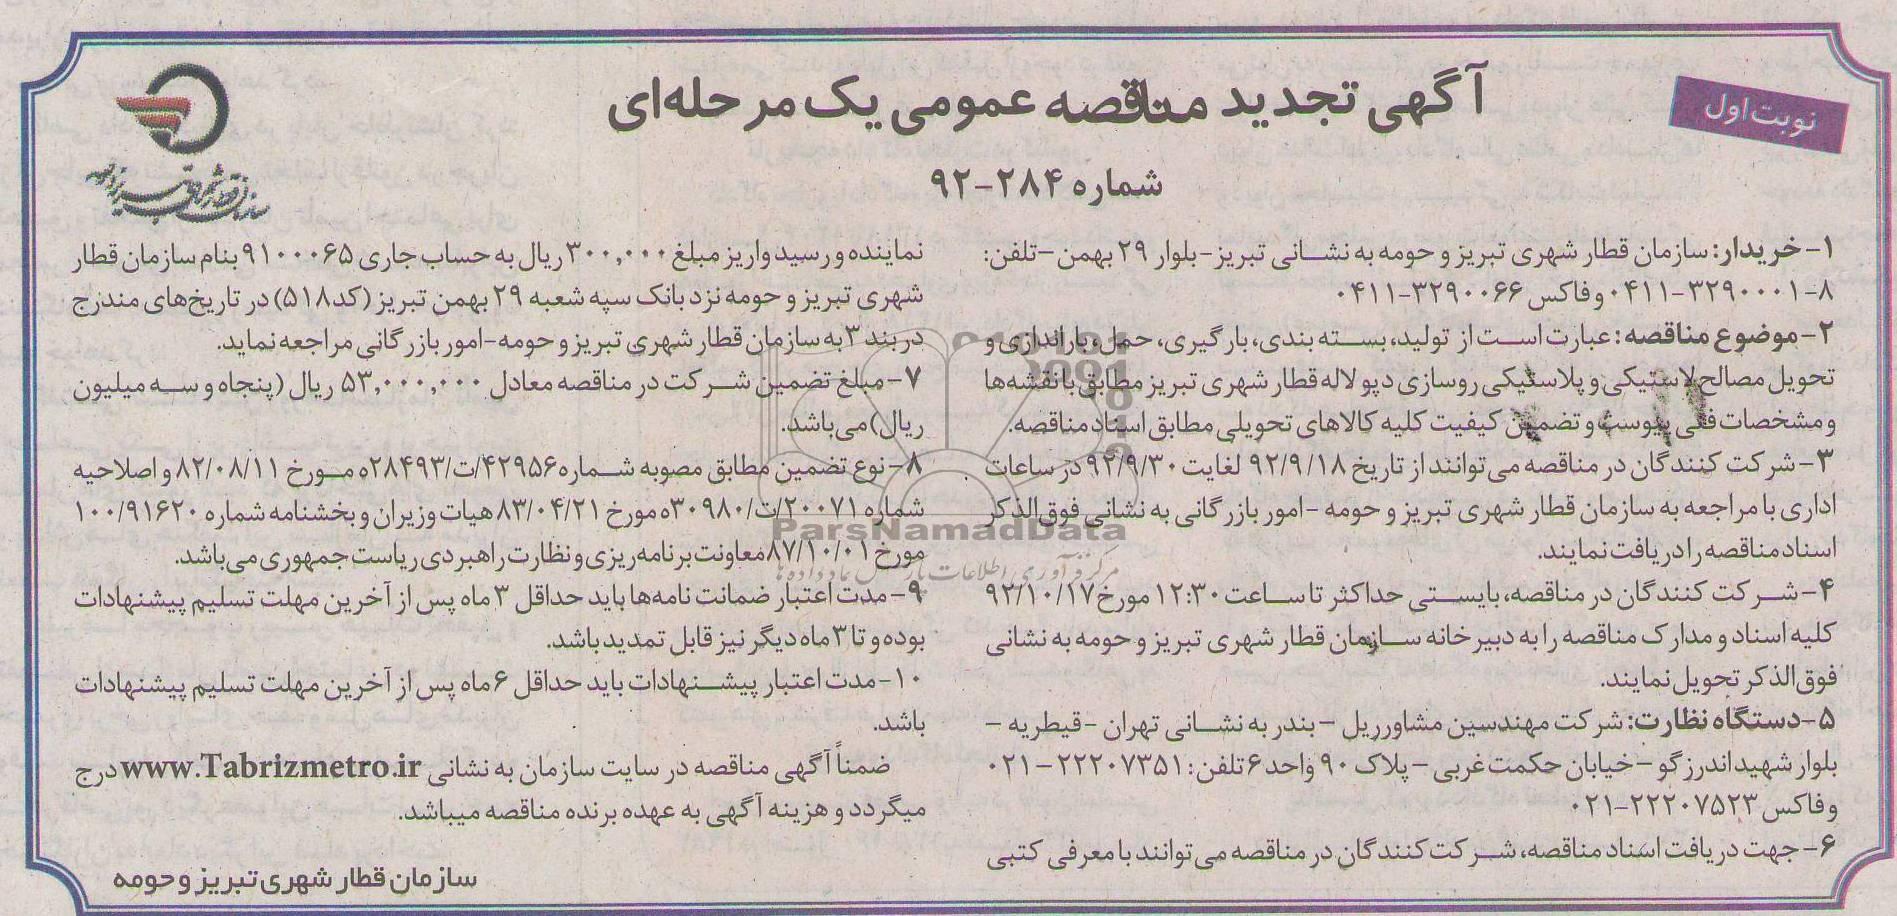 نوبت اول
آگهی تجدید مناقصه عمومی یک مرحله‌ای
شماره ۲۸۴-۹۲
۱- خریدار: سازمان قطار شهری تبریز و حومه به نشانی تبریز- بلوار ۲۹ بهمن -تلفن:
۸-۰۴۱۱-۳۲۹۰۰۰۱ و فاکس ۳۲۹۰۰۶۶-۰۴۱۱
۲- موضوع مناقصه: عبارت است از تولید، بسته بندی، بارگیری، حمل، باراندازی و
تحویل مصالح لاستیکی و پلاستیکی روسازی دپو لاله قطار شهری تبریز مطابق با نقشه‌ها
و مشخصات فنی پیوست و تضمین کیفیت کلیه کالاهای تحویلی مطابق اسناد مناقصه.
۳- شرکت کنندگان در مناقصه می‌توانند از تاریخ ۹۲/۹/۱۸ لغایت ۹۲/۹/۳۰ در ساعات
اداری با مراجعه به سازمان قطار شهری تبریز و حومه -امور بازرگانی به نشانی فوق‌الذکر
اسناد مناقصه را دریافت نمایند.
۴- شرکت کنندگان در مناقصه، بایستی حداکثر تا ساعت ۱۲:۳۰ مورخ ۹۲/۱۰/۱۷
کلیه اسناد و مدارک مناقصه را به دبیرخانه سازمان قطار شهری تبریز و حومه به نشانی
فوق‌الذکر تحویل نمایند.
۵- دستگاه نظارت: شرکت مهندسین مشاور ریل - بندر به نشانی تهران - قیطریه -
بلوار شهید اندرزگو - خیابان حکمت غربی - پلاک ۹۰ واحد ۶ تلفن: ۲۲۲۰۷۳۵۱ - ۰۲۱
و فاکس ۲۲۲۰۷۵۲۳-۰۲۱
۶- جهت دریافت اسناد مناقصه، شرکت کنندگان در مناقصه می‌توانند با معرفی کتبی
نماینده و رسید واریز مبلغ ۳۰۰,۰۰۰ ریال به حساب جاری ۹۱۰۰۰۶۵ بنام سازمان قطار
شهری تبریز و حومه نزد بانک سپه شعبه ۲۹ بهمن تبریز (کد ۵۱۸) در تاریخ‌های مندرج
در بند ۳ به سازمان قطار شهری تبریز و حومه- امور بازرگانی مراجعه نماید.
۷- مبلغ تضمین شرکت در مناقصه معادل ۵۳,۰۰۰,۰۰۰ ریال (پنجاه و سه میلیون
ریال) می‌باشد.
۸- نوع تضمین مطابق مصوبه شماره ۴۲۹۵۶/ت/۲۸۴۹۳ه مورخ ۸۲/۰۸/۱۱ و اصلاحیه
شماره ۲۰۰۷۱/ت/۳۰۹۸۰ه مورخ ۸۳/۰۴/۲۱ هیات وزیران و بخشنامه شماره ۱۰۰/۹۱۶۲۰
مورخ ۸۷/۱۰/۰۱ معاونت برنامه‌ریزی و نظارت راهبردی ریاست جمهوری می‌باشد.
۹- مدت اعتبار ضمانت نامه‌ها باید حداقل ۳ ماه پس از آخرین مهلت تسلیم پیشنهادات
بوده و تا ۳ ماه دیگر نیز قابل تمدید باشد.
۱۰- مدت اعتبار پیشنهادات باید حداقل ۶ ماه پس از آخرین مهلت تسلیم پیشنهادات
باشد.
ضمناً آگهی مناقصه در سایت سازمان به نشانی www.Tabrizmetro.ir درج
میگردد و هزینه آگهی به عهده برنده مناقصه میباشد.
سازمان قطار شهری تبریز و حومه
سازمان قطار شهری تبریز و حومه
ParsNamadData
مرکز فرآوری اطلاعات پارس نماد داده‌ها